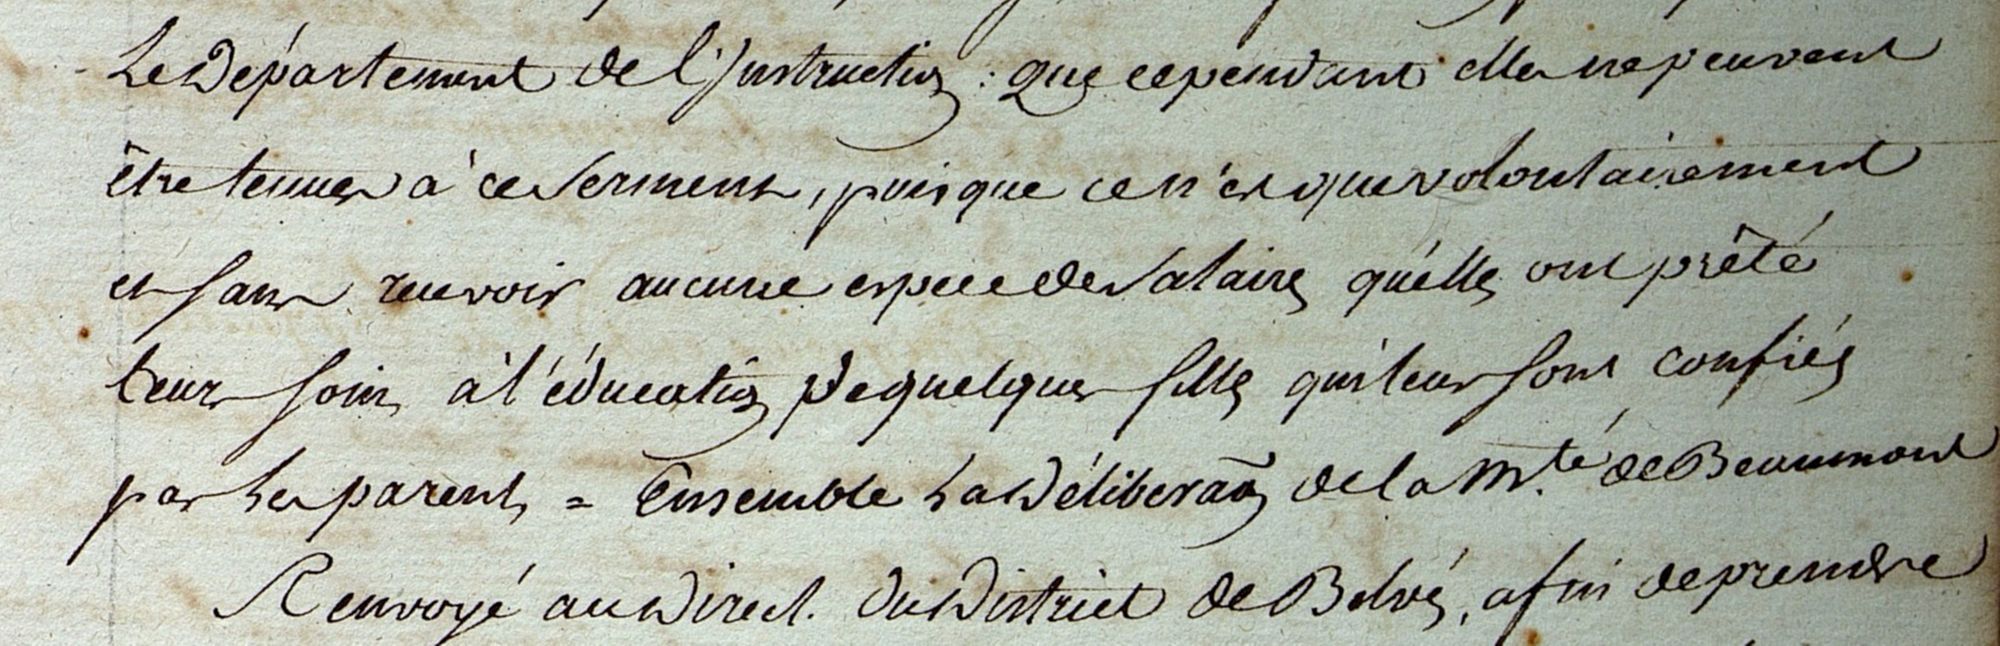 Le Département de l'Instruction : que cependant elles ne peuvent
être tenues à ce serment, puisque ce n'est que volontairement
et sans recevoir aucune espece de salaires qu'elles ont prêté
leurs soins à l'éducation de quelques filles qui leur sont confiés
par les parents = Ensemble la délibéraõn de la M.té de Beaumont
Renvoyé au Direct. du District de Belvés, afin de prendre